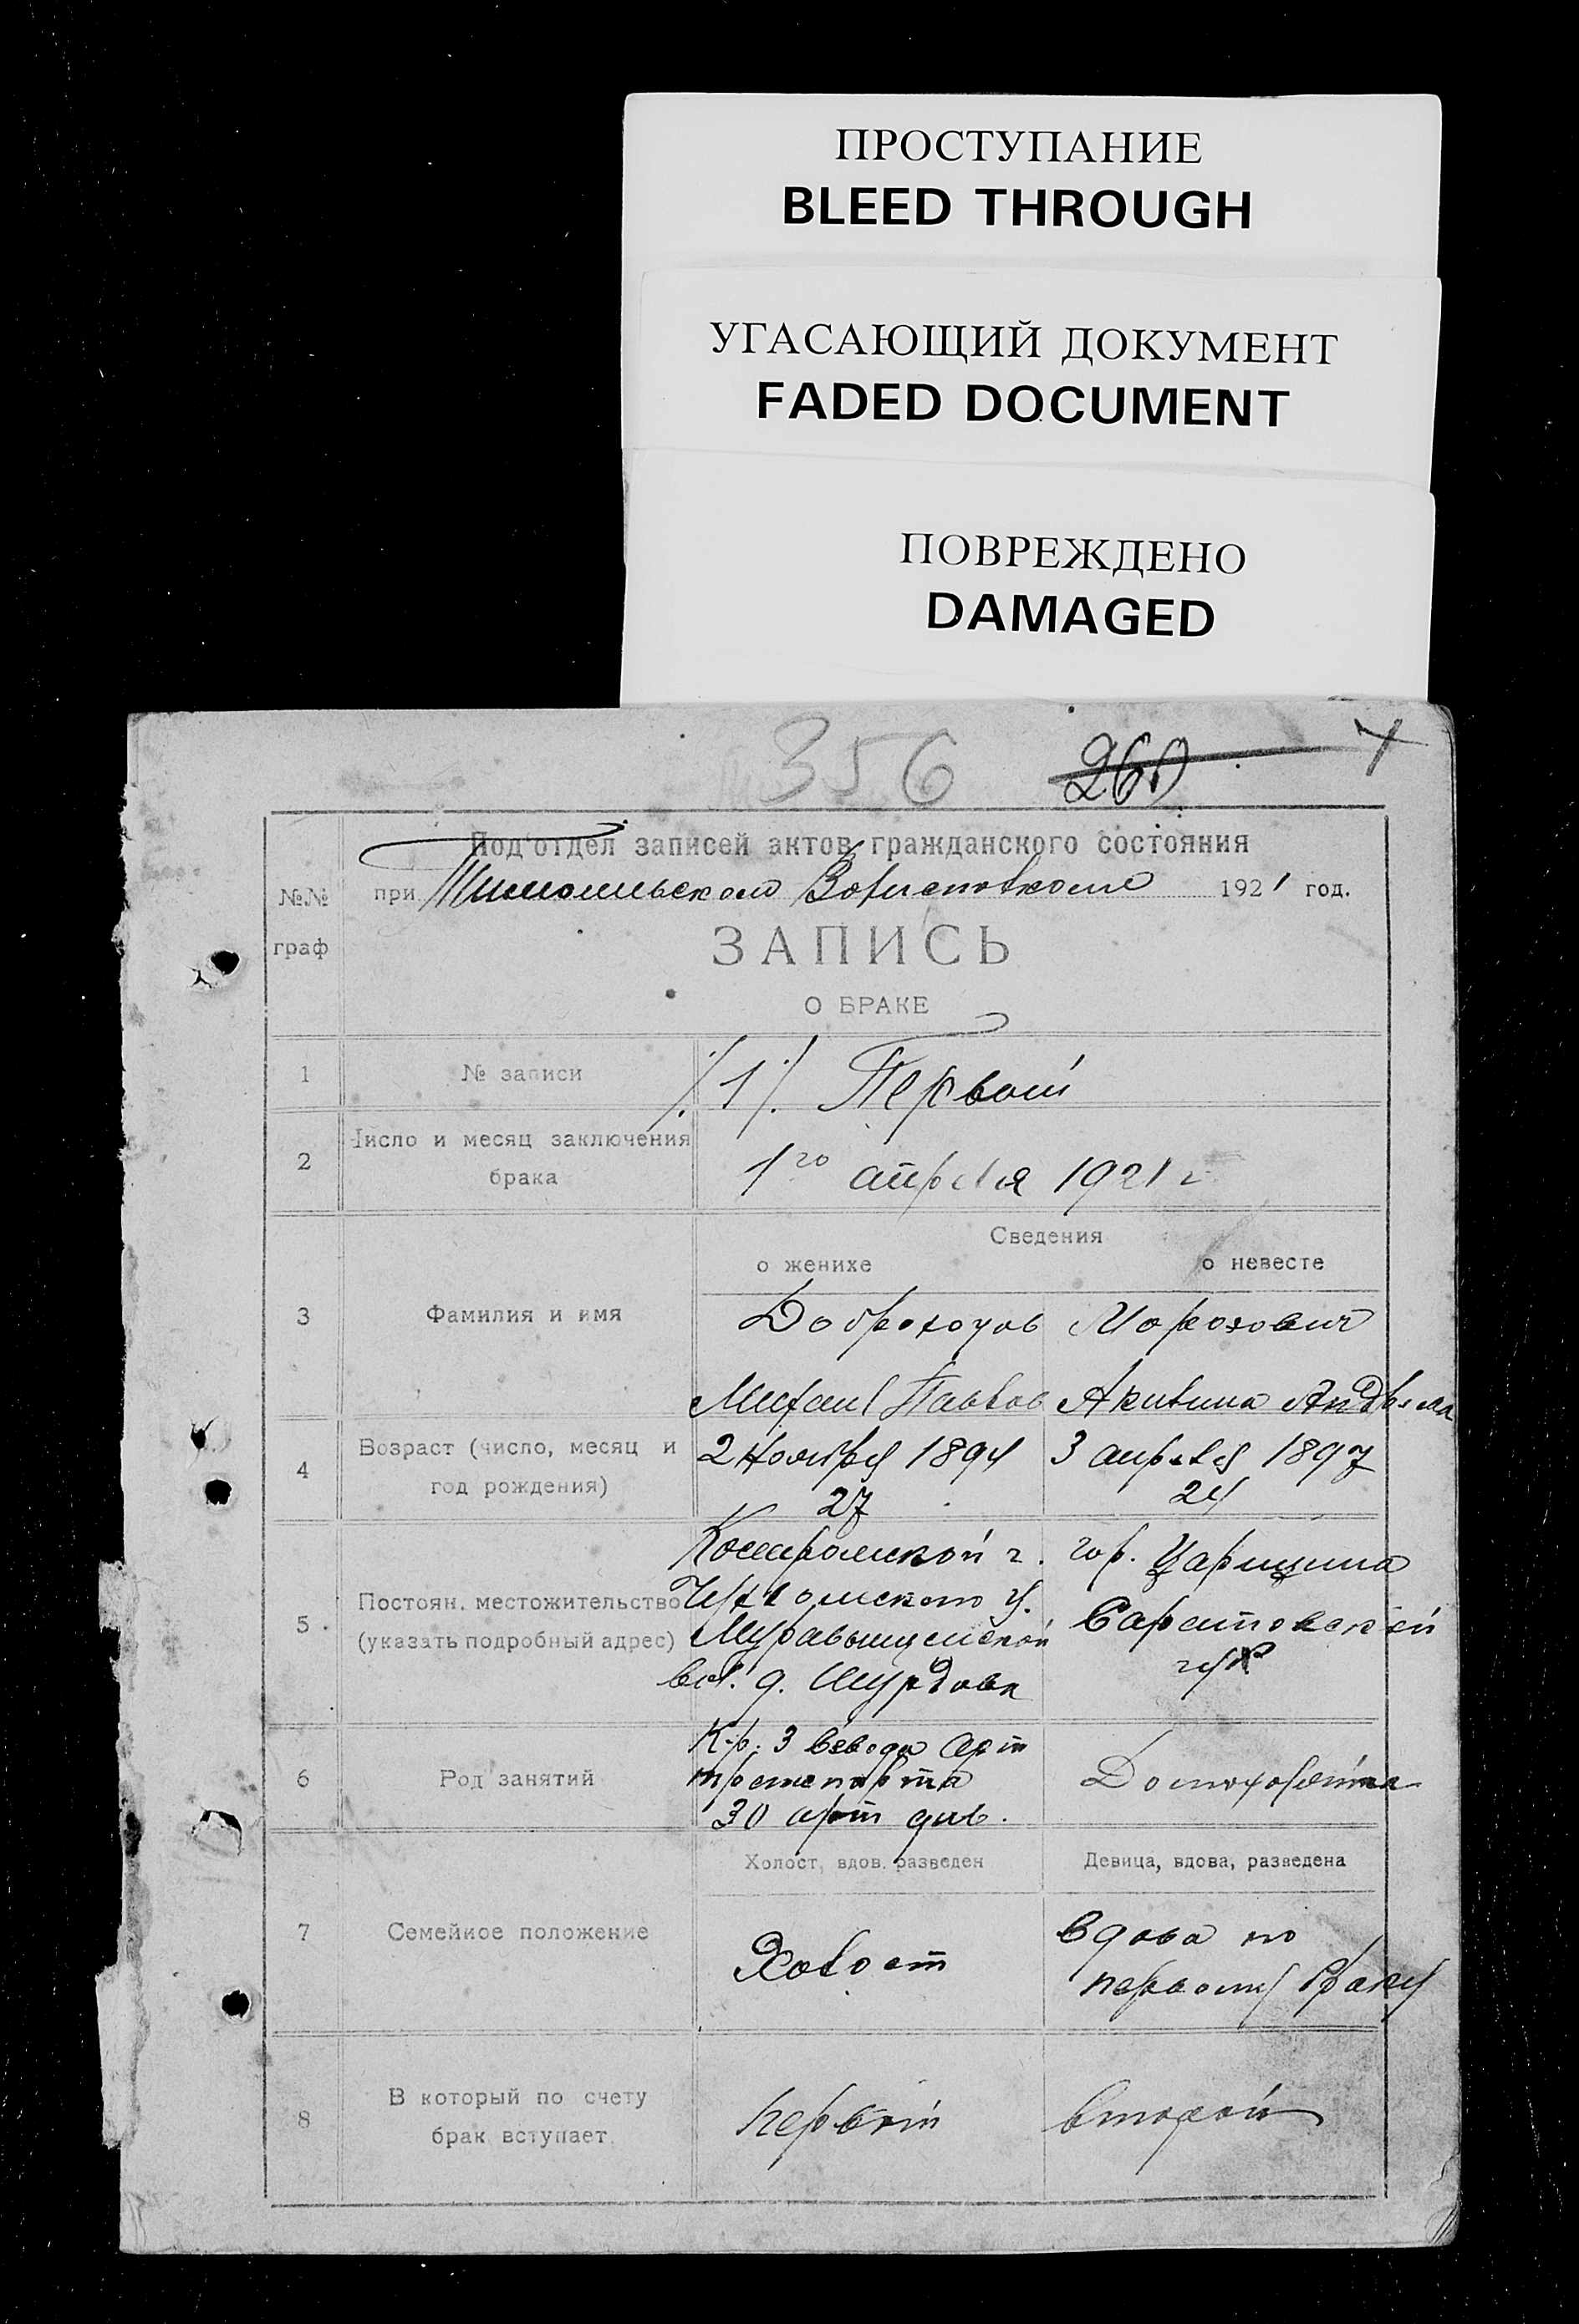 ПРОСТУПАНИЕ
BLEED THROUGH
УГАСАЮЩИЙ ДОКУМЕНТ
FADED DOCUMENT
ПОВРЕЖДЕНО
DAMAGED
356 260
Под'отдел записей актов гражданского состояния
№№ при 1921 год.
граф
ЗАПИСЬ
О БРАКЕ
1 № записи 1 Первый
2 Число и месяц заключения
брака
1го апреля 1921 г
Сведения
о женихе о невесте
3 Фамилия и имя Доброхотов Морозович
Михаил Павлов Акилина
4 Возраст (число, месяц и
год рождения)
2 Ноября 1894 3 апреля 1897
27 24
5 Постоян. местожительство
(указать подробный адрес)
Костромской г. гор. Царицина
Чухломского у. Саратовской
Муравьищенской губ
вол. д.
6 Род занятий
Кр. 3 взвода арт
транспорта Домохозяйка
30 арт див.
Холост, вдов. разведен Девица, вдова, разведена
7 Семейное положение
Холост вдова по
первому браку
8 В который по счету
брак вступает
первый второй